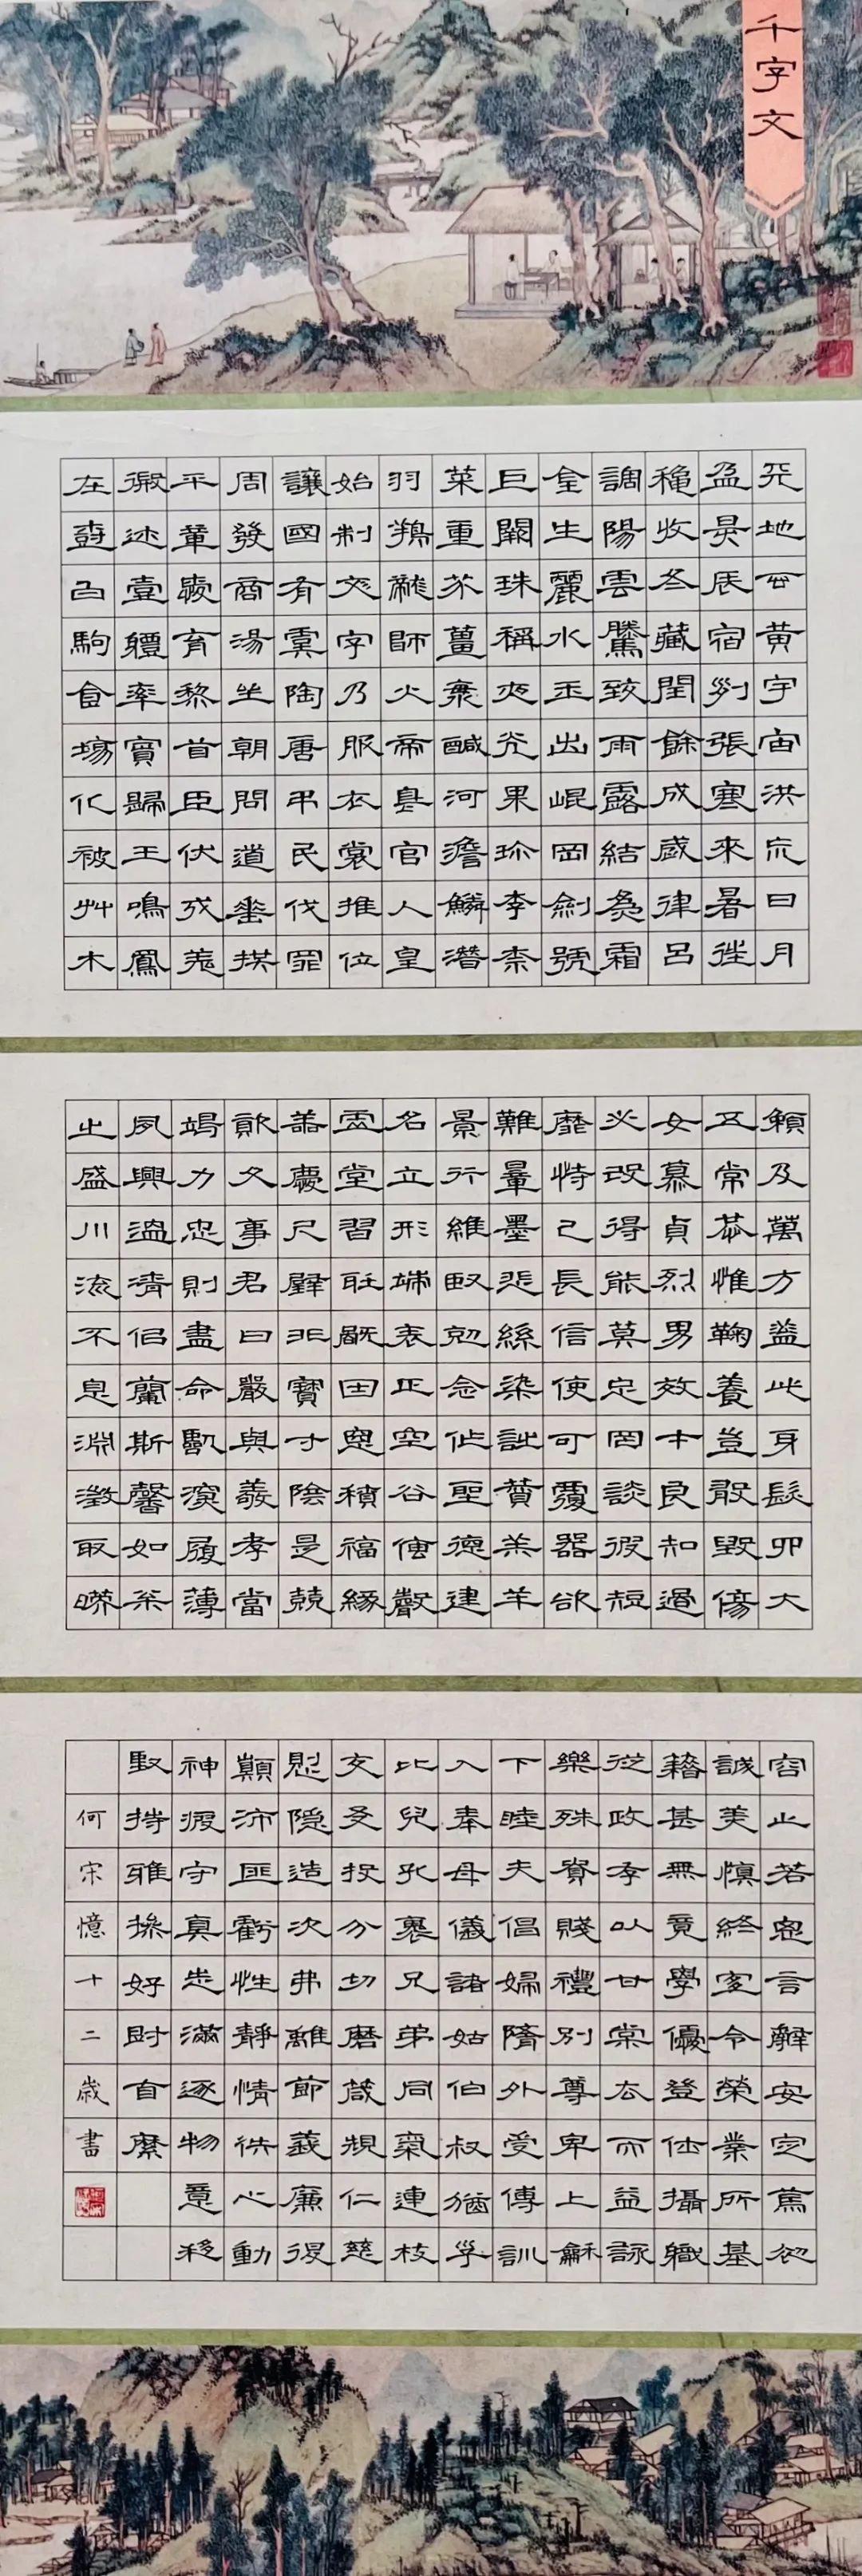 千字文
天地玄黃宇宙洪荒日月
盈昃辰宿列張寒來暑往
穐收冬藏閏餘成歲律呂
調陽雲騰致雨露結為霜
金生麗水玉出崐岡劍號
巨闕珠稱夜光果珍李柰
菜重芥薑海鹹河澹鱗潛
羽翔龍師火帝鳥官人皇
始制文字乃服衣裳推位
讓國有虞陶唐弔民伐罪
周發商湯坐朝問道垂拱
平章愛育黎首臣伏戎羌
遐邇壹體率賓歸王鳴鳳
在樹白駒食場化被艸木
賴及萬方蓋此身髮四大
五常恭惟鞠養豈敢毀傷
女慕貞烈男效才良知過
必改得能莫忘罔談彼短
靡恃己長信使可覆器欲
難量墨悲絲染詩贊羔羊
景行維賢克念作聖德建
名立形端表正空谷傳聲
虛堂習聽禍因惡積福緣
善慶尺璧非寶寸陰是競
資父事君曰嚴與敬孝當
竭力忠則盡命臨深履薄
夙興溫凊似蘭斯馨如松
之盛川流不息淵澂取暎
容止若思言辭安定篤初
誠美慎終宜令榮業所基
籍甚無竟學優登仕攝職
從政存以甘棠去而益詠
樂殊貴賤禮別尊卑上龢
下睦夫倡婦隨外受傅訓
入奉母儀諸姑伯叔猶子
比兒孔懷兄弟同氣連枝
交友投分切磨箴規仁慈
惻隱造次弗離節義廉退
顛沛匪虧性靜情佚心動
神疲守真志滿逐物意移
堅持雅操好爵自縻
何宋憶十二歲書